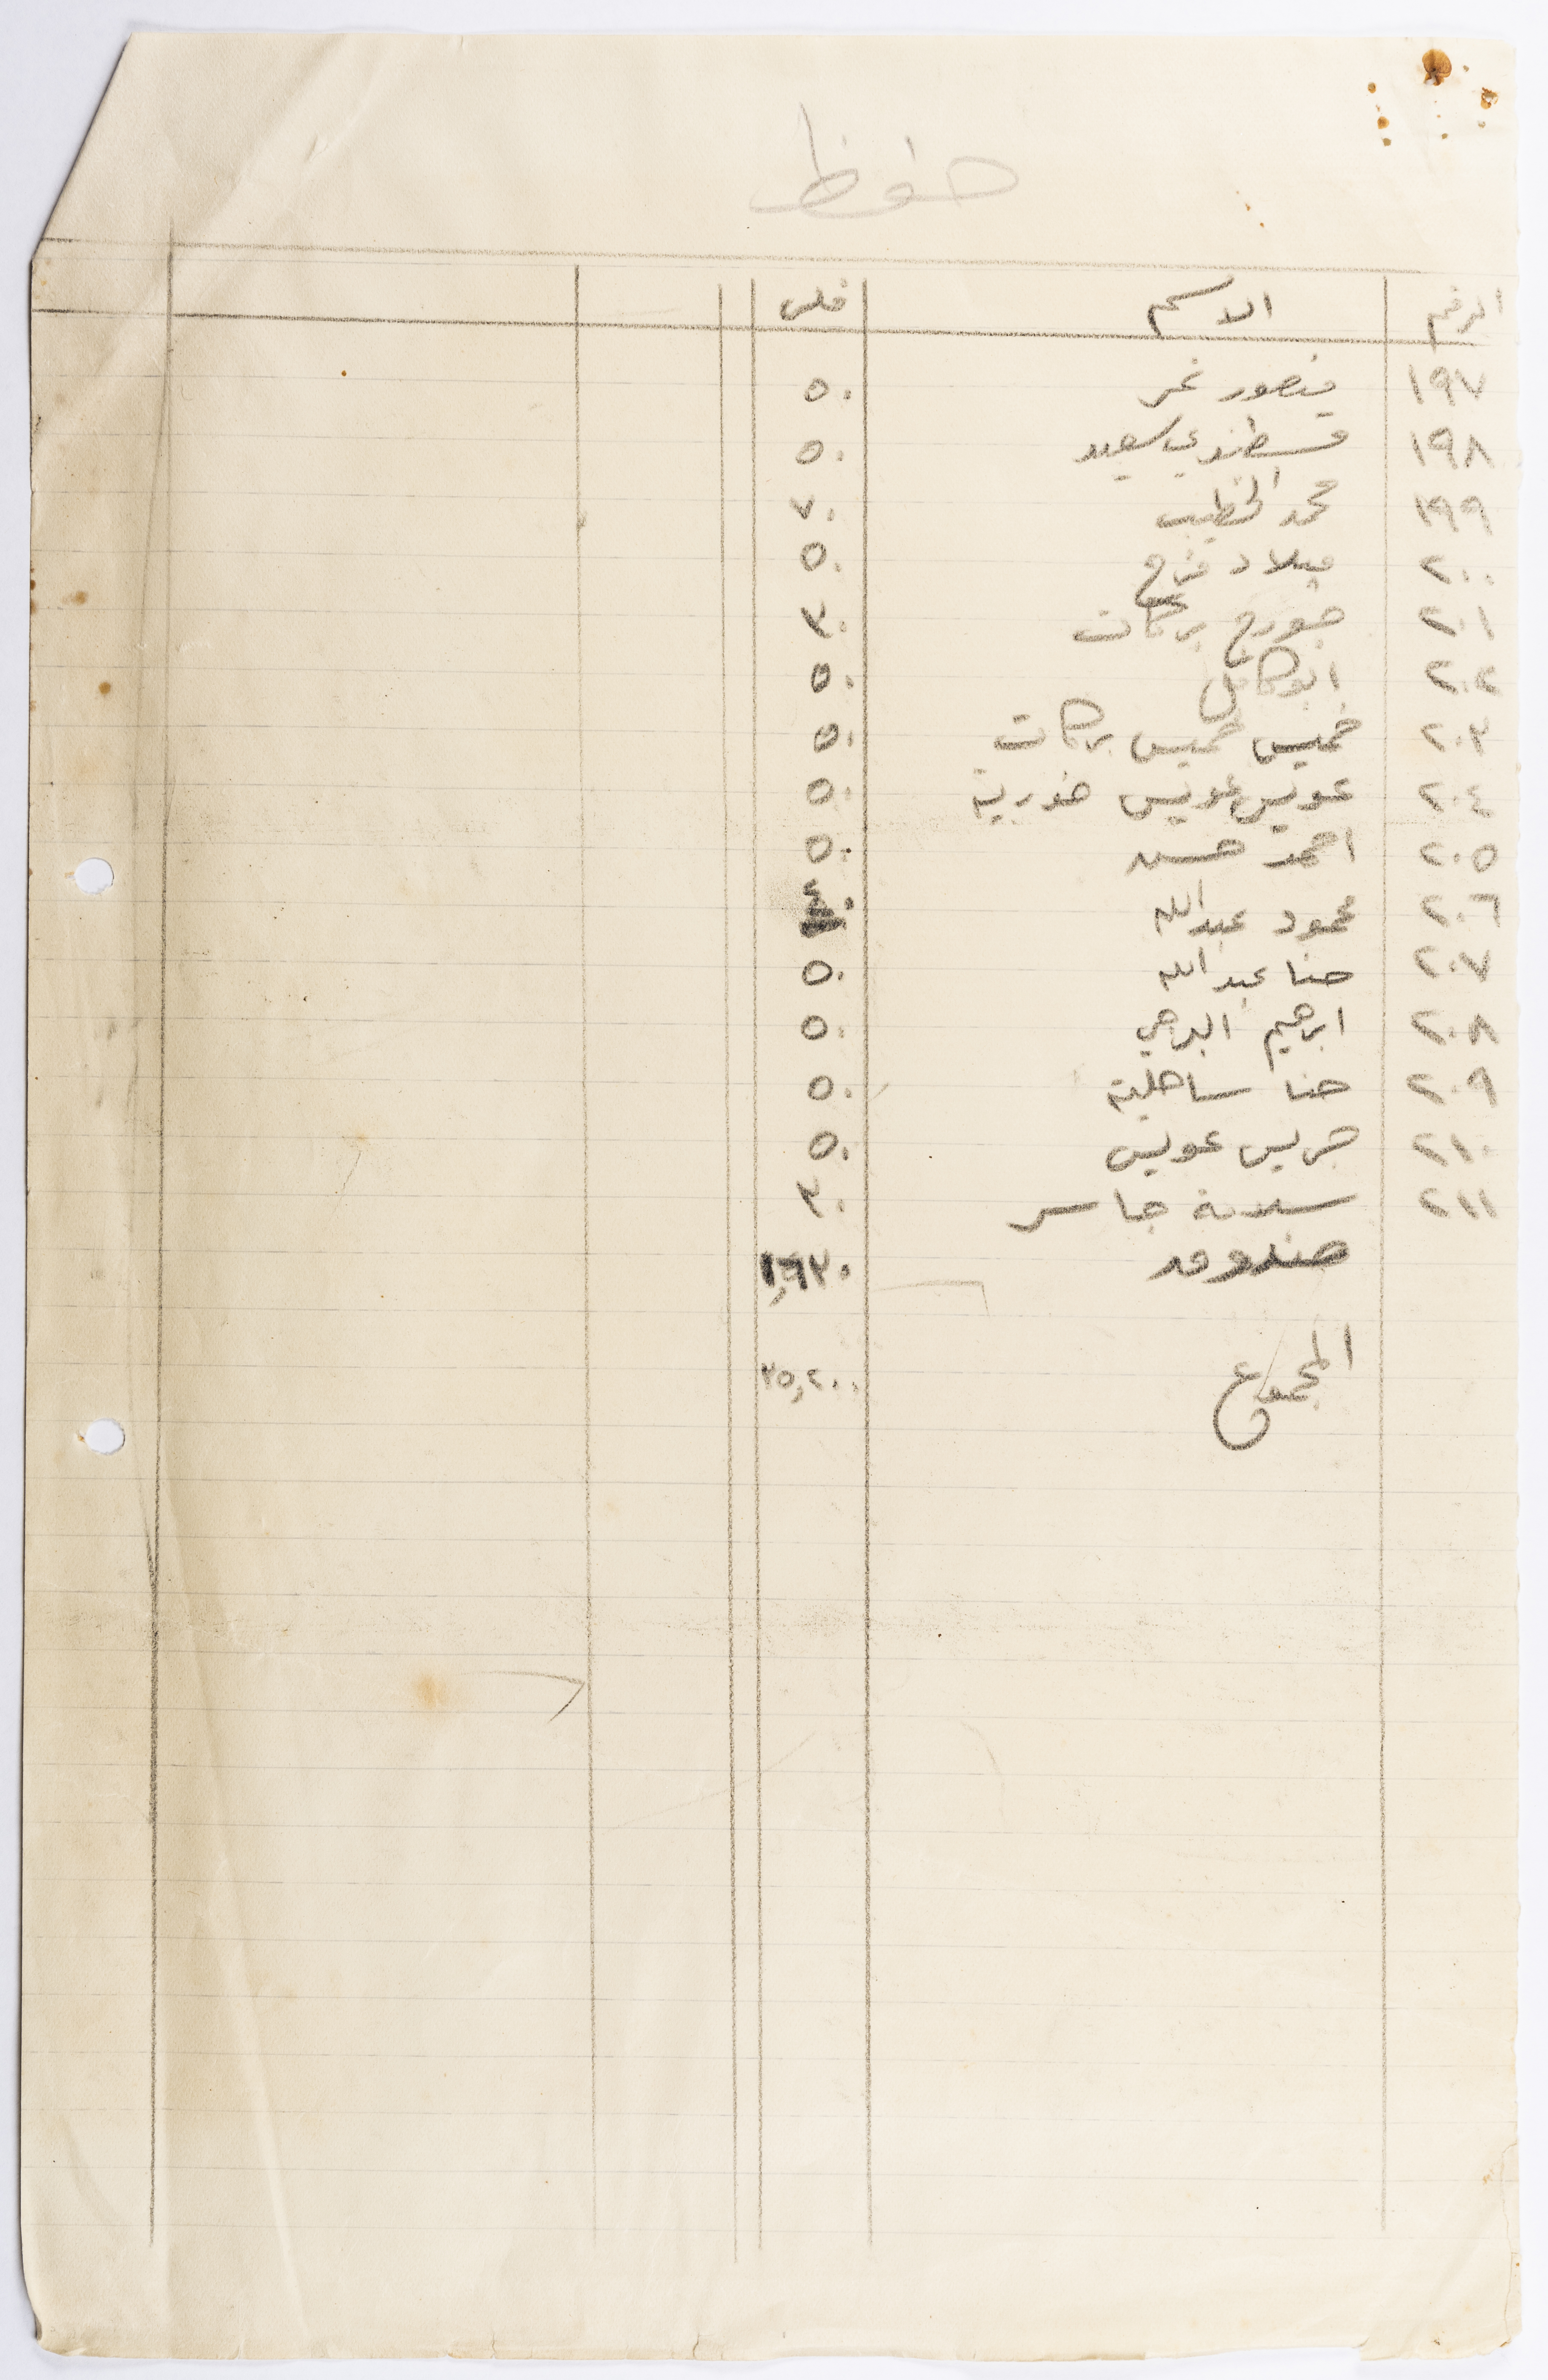 حفظ
الرقم الاسم فلس
١٩٧ منصور نمر ٥٠
١٩٨ قسطندي سعيد ٥٠
١٩٩ محمد الخطيب ٧٠
٢٠٠ ميلاد فرح ٥٠
٢٠١ جورج بركات ٣٠
٢٠٢ ابو كامل ٥٠
٢٠٣ خميس خميس بركات ٥٠
٢٠٤ عويس عويس خورية ٥٠
٢٠٥ احمد حسن ٥٠
٢٠٦ محمود عبدالله ٤٠
٢٠٧ حنا عبدالله ٥٠
٢٠٨ ابرهيم البرهمي ٥٠
٢٠٩ حنا ساحلية ٥٠
٢١٠ جريس عويس ٥٠
٢١١ سلامة جاسر ٣٠
صندوق ١,٦٣٠
المجموع ٣٥,٢٠٠